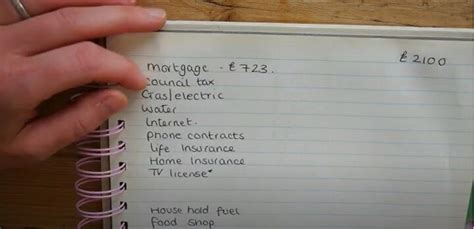 £2100
mortgage - £723.
council tax
Gas/electric
water
Internet.
phone contracts
Life Insurance
Home Insurance
TV license*
House hold fuel
food shop